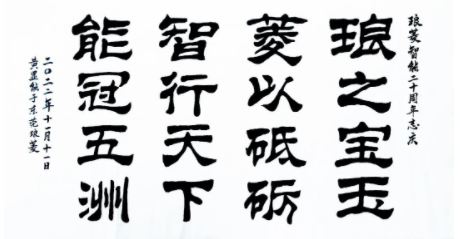 琅菱智能二十周年志庆
琅之宝玉
菱以砥砺
智行天下
能冠五洲
二〇二二年十一月十一日
黄能于东莞琅菱